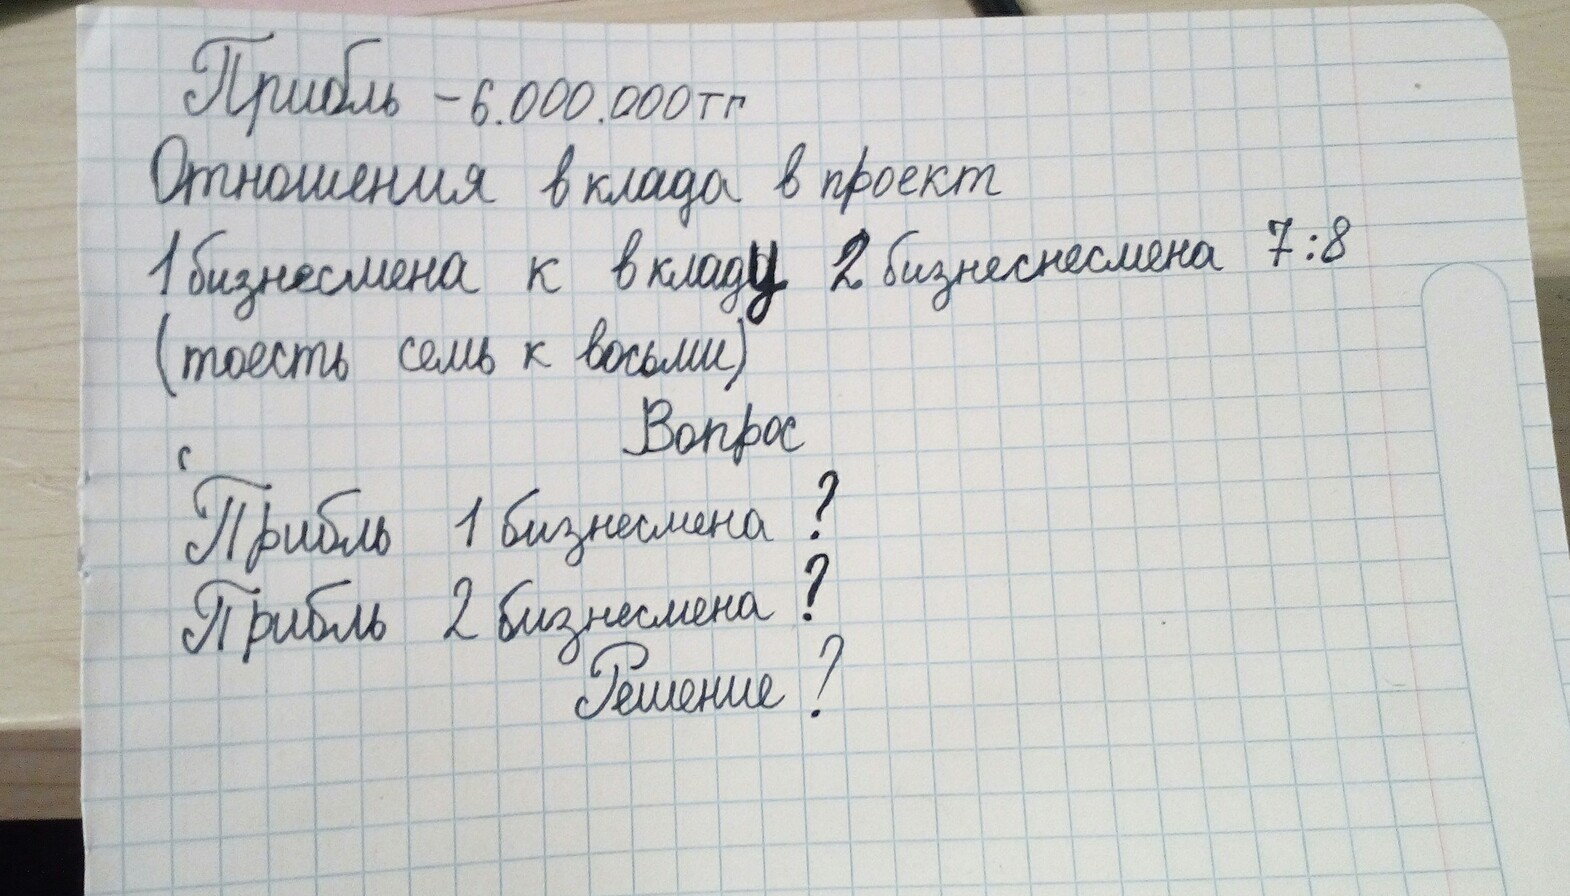 Прибль - 6.000.000тг
Отношения вклада в проект
1 бизнесмена к вкладу 2 бизнеснесмена 7:8
(тоесть семь к восьми)
Вопрос
с
Прибль 1 бизнесмена ?
Прибль 2 бизнесмена ?
Решение ?